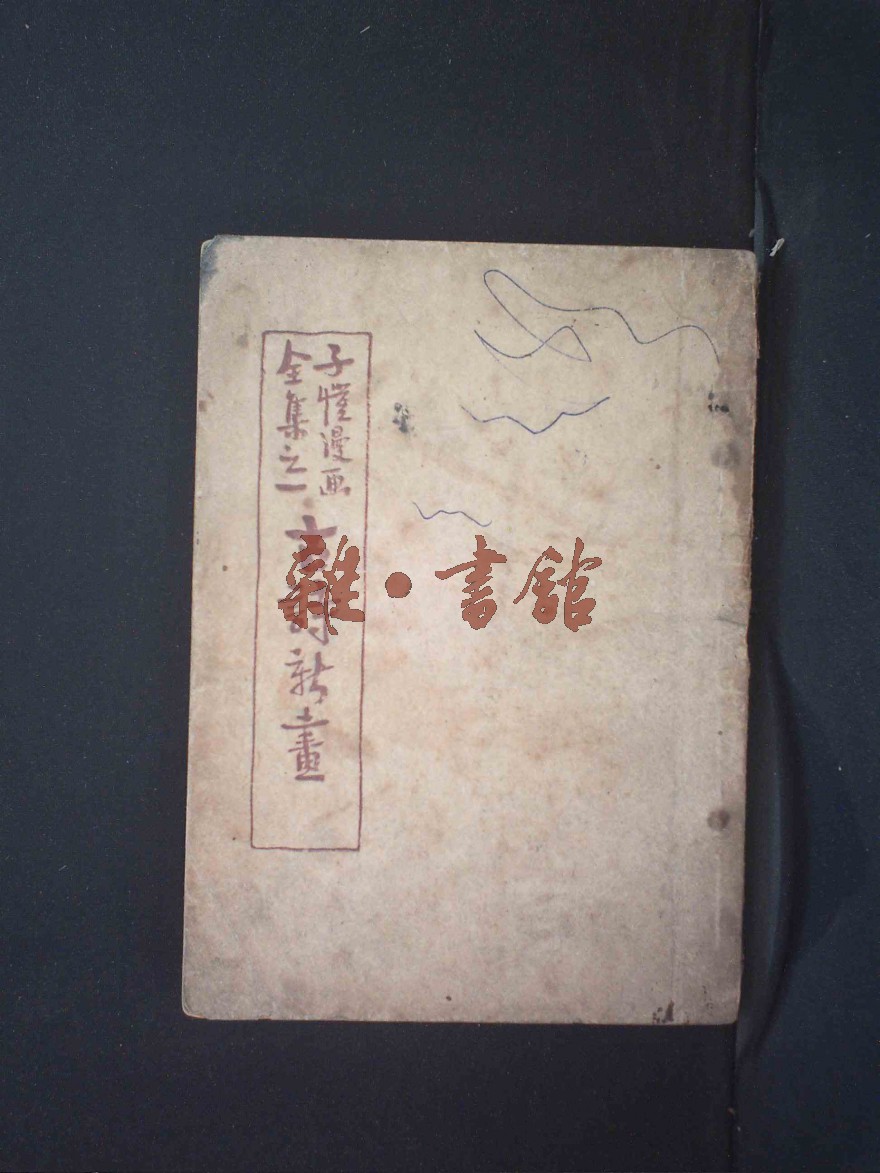 子愷漫画
全集之一
古詩新畫
雜·書館